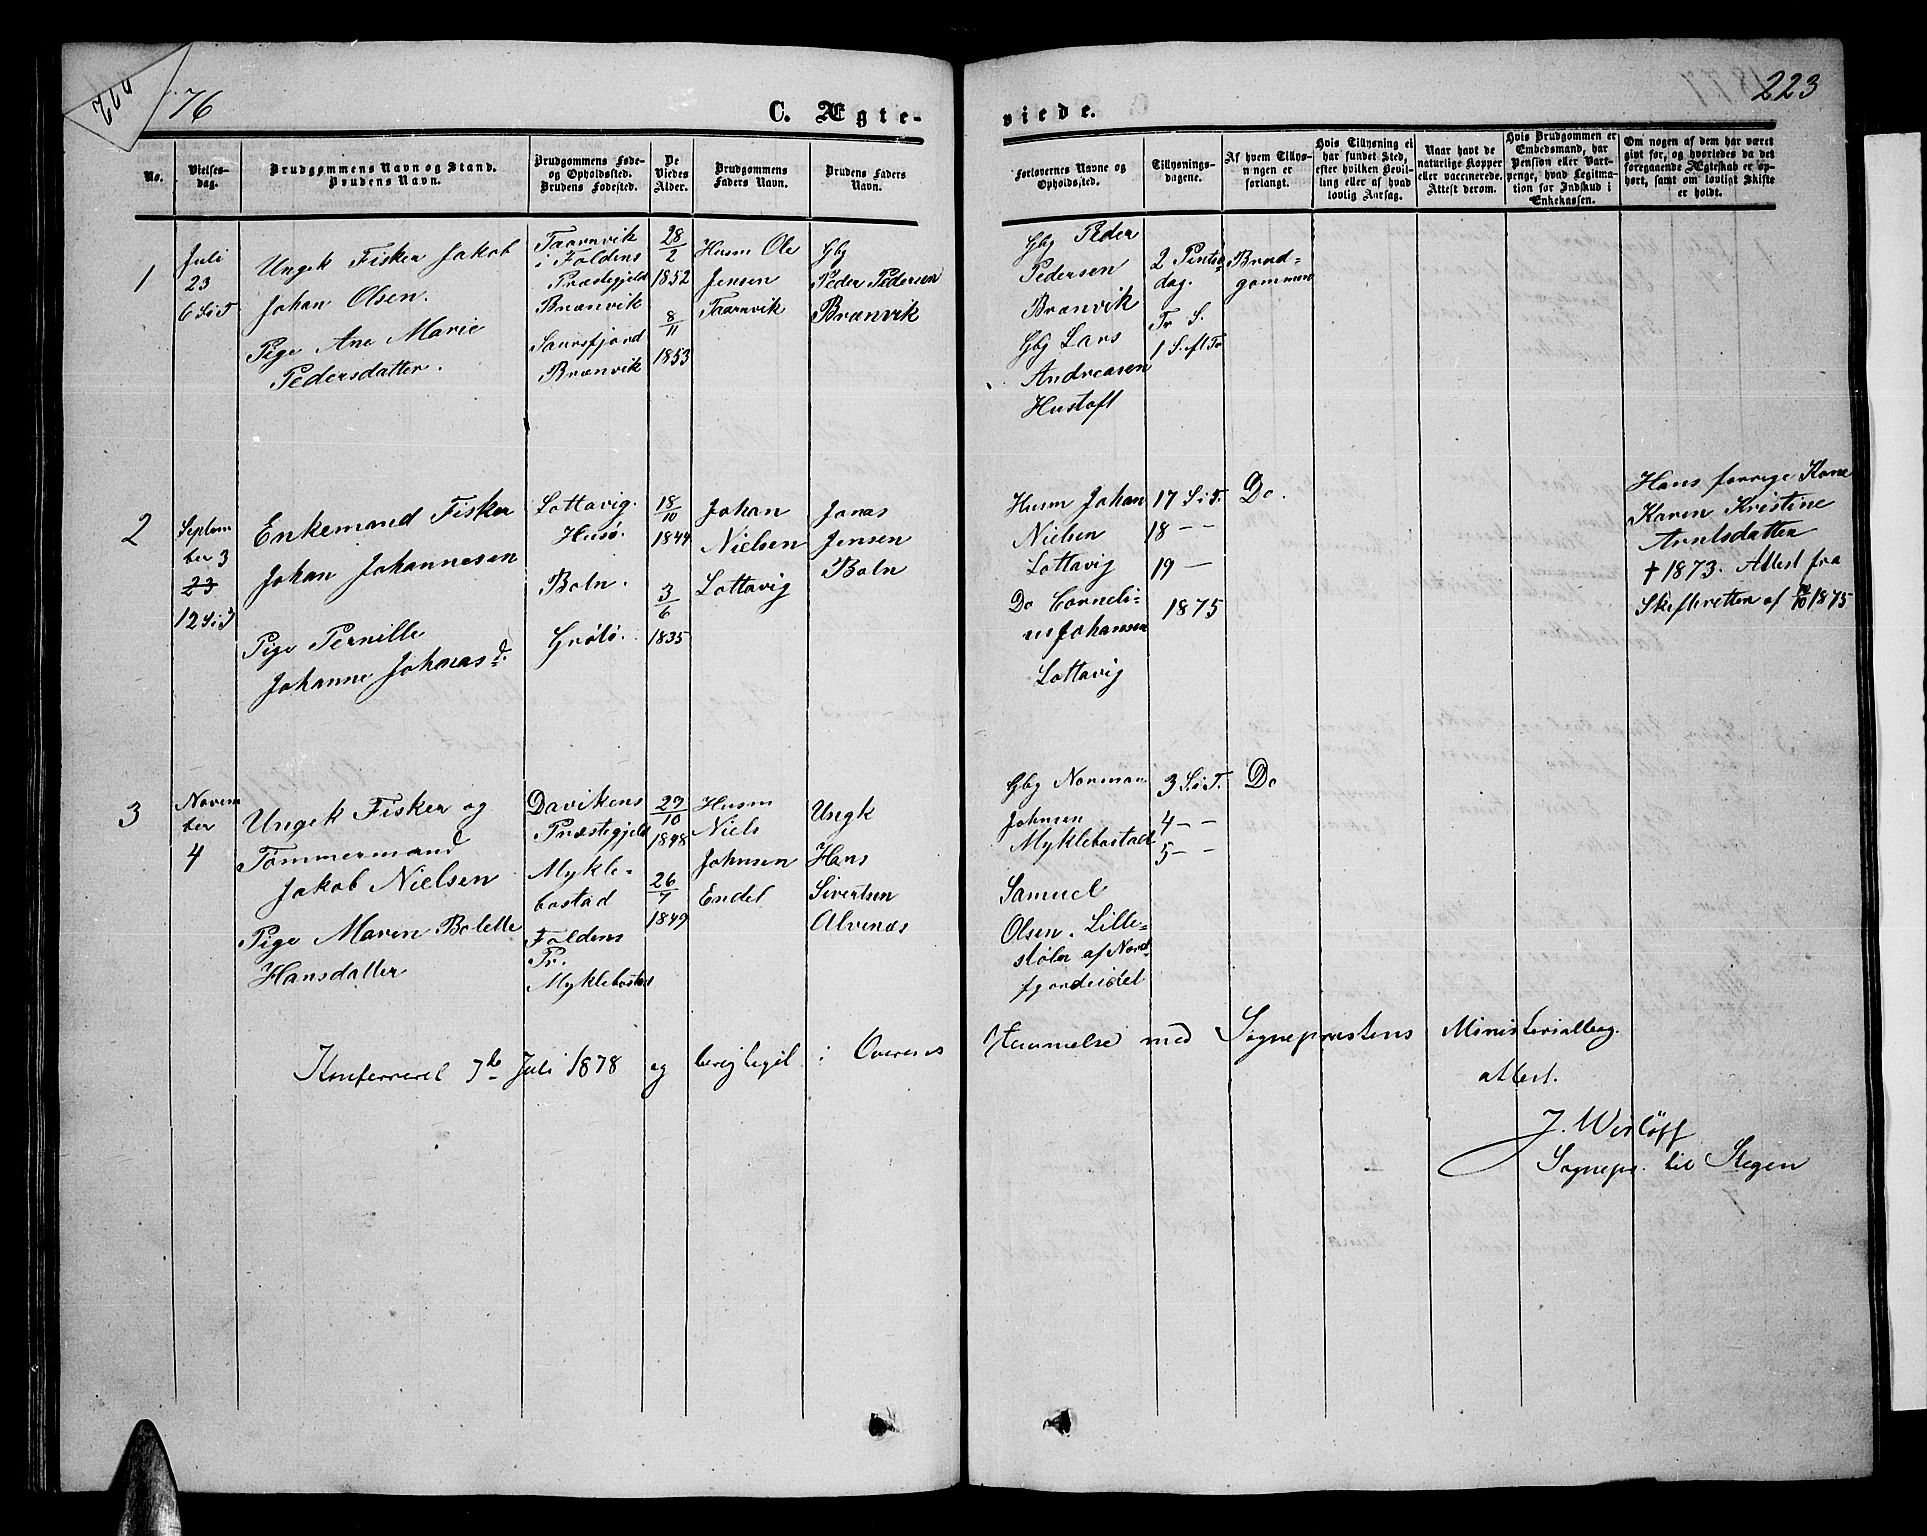 76
223
C. Ægte-
viede.
No.
Vielses-
dag.
Brudgommens Navn og Stand.
Brudens Navn.
Brudgommens Føde-
og Opholdssted.
Brudens Fødested.
De
Viedes
Alder.
Brudgommens
Faders Navn.
Brudens Faders
Navn.
Forlovernes Navne og
Opholdsted.
Tillysnings-
dagene.
Af hvem Tillys-
ningen er
forlangt.
Hvis Tillysning ei
har fundet Sted,
efter hvilken Bevil-
ling eller af hvad
lovlig Aarsag.
Naar havt de
naturlige Kopper
eller vaccinerede.
Attest derom.
Hvis Brudgommen er
Embedsmand, har
Pension eller Vart-
penge, hvad Legitima-
tion for Indskud i
Enkekassen.
Om nogen af dem har været
givt før, og hvorledes da det
foregaaende Ægteskab er op-
hørt, samt om lovligt Skifte
er holdt.
1
Juli
23
6 S i T
Ungk Fisker Jakob
Johan Olsen.
Pige Ane Marie
Pedersdatter.
Taarnvik
i Foldens
Præstegjeld
Brænvik
Saursfjord
Brænvik
28/2
1852
8/11
1853
Husm Ole
Jensen
Taarnvik
Gbg
Peder Pedersen
Brænvik
Gbg Peder
Pedersen
Brænvik
Gbg Lars
Andreasen
Hustoft
2 Pintse-
dag.
Tr S.
1 S. eft Tr
Brud-
gommen
2
Septem
ber 3
23
12 S i T
Enkemand Fisker
Johan Johannesen
Pige Pernille
Johanne Johnas d.
Lottavig.
Husø.
Boln.
Grøtø.
18/10
1844
3/6
1835
Johan
Nielsen
Lottavig
Jonas
Jensen
Boln
Husm Johan
Nielsen
Lottavig
Do Corneli-
us Johansen
Lottavig
17 S i T.
18 — —
19 —
1875
Do.
Hans forrige Kone
Karen Kristine
Arntsdatter
† 1873. Attest fra
Skifteretten af /10 1875
3
Novem
ber
4
Ungk Fisker og
Tømmermand
Jakob Nielsen
Pige Maren Bolette
Hansdatter
Davikens
Præstegjeld
Mykle-
bostad
Foldens
Pr.
Myklebostad
27/10
1848
26/7
1849
Husm
Niels
Johnsen
Endel
Ungk
Hans
Sivertsen
Alvenæs
Gbg Norman
Johnsen
Myklebostad
Samuel
Olsen. Lille-
støln af Nord-
fjordeidet
3 S i T.
4 — —
5 — —
Do
Konfereret 7de Juli 1878 og berigtiget i Overens
stemmelse med Sognepræstens Ministerialbog.
attest.
J. Wisløff
Sognepr. til Stegen